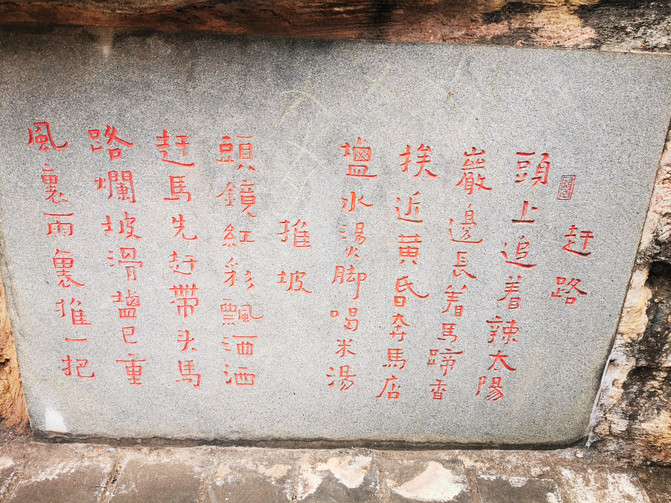 赶路
頭上追着辣太陽
巖邊長着馬蹄香
挨近黄昏奔馬店
塩水燙脚喝米湯
推坡
頭鏡紅彩飄洒洒
赶馬先赶帶头馬
路爛坡滑塩巴重
風裏雨裏推一把